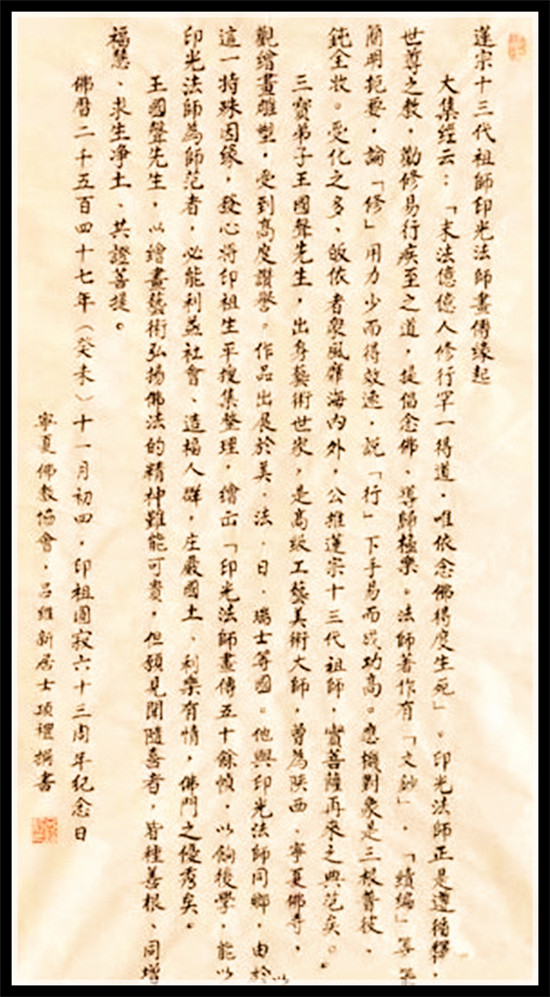 蓮宗十三代祖師印光法師畫傳缘起
大集經云：「末法億億人修行罕一得道，唯依念佛得度生死」。印光法師正是遵循釋，
世尊之教，勤修易行疾至之道，提倡念佛，導歸極樂。法師著作有「文鈔」，「續編」等
簡明扼要，論「修」用力少而得效速，説「行」下手易而成功高。應機對象是三根普被、
鈍全收。受化之多、皈依者衆風靡海内外，公推蓮宗十三代祖師，實菩薩再來之典范矣。
三寶弟子王國聲先生，出身藝術世家，是高级工藝美術大師，曾為陝西、寧夏佛寺，
觀繪畫雕塑，受到高度讚譽。作品出展於美．法．日．瑞士等國。他與印光法師同鄉，由於以
這一持殊因缘，發心將印祖生平搜集整理，繪画「印光法師畫傳五十餘幀，以餉後學，能以
印光法師為師范者，必能利益社會、造福人群，庄嚴國土、利樂有情，佛門之優秀矣。
王國聲先生，以繪畫藝術弘揚佛法的精神難能可貴，但願見聞隨喜者，皆種善根、同增
福慧、求生净土、共證菩提。
佛曆二千五百四十七年（癸未）十一月初四，印祖圓寂六十三周年纪念日
寧夏佛教協會，吕維新居士項禮撰書